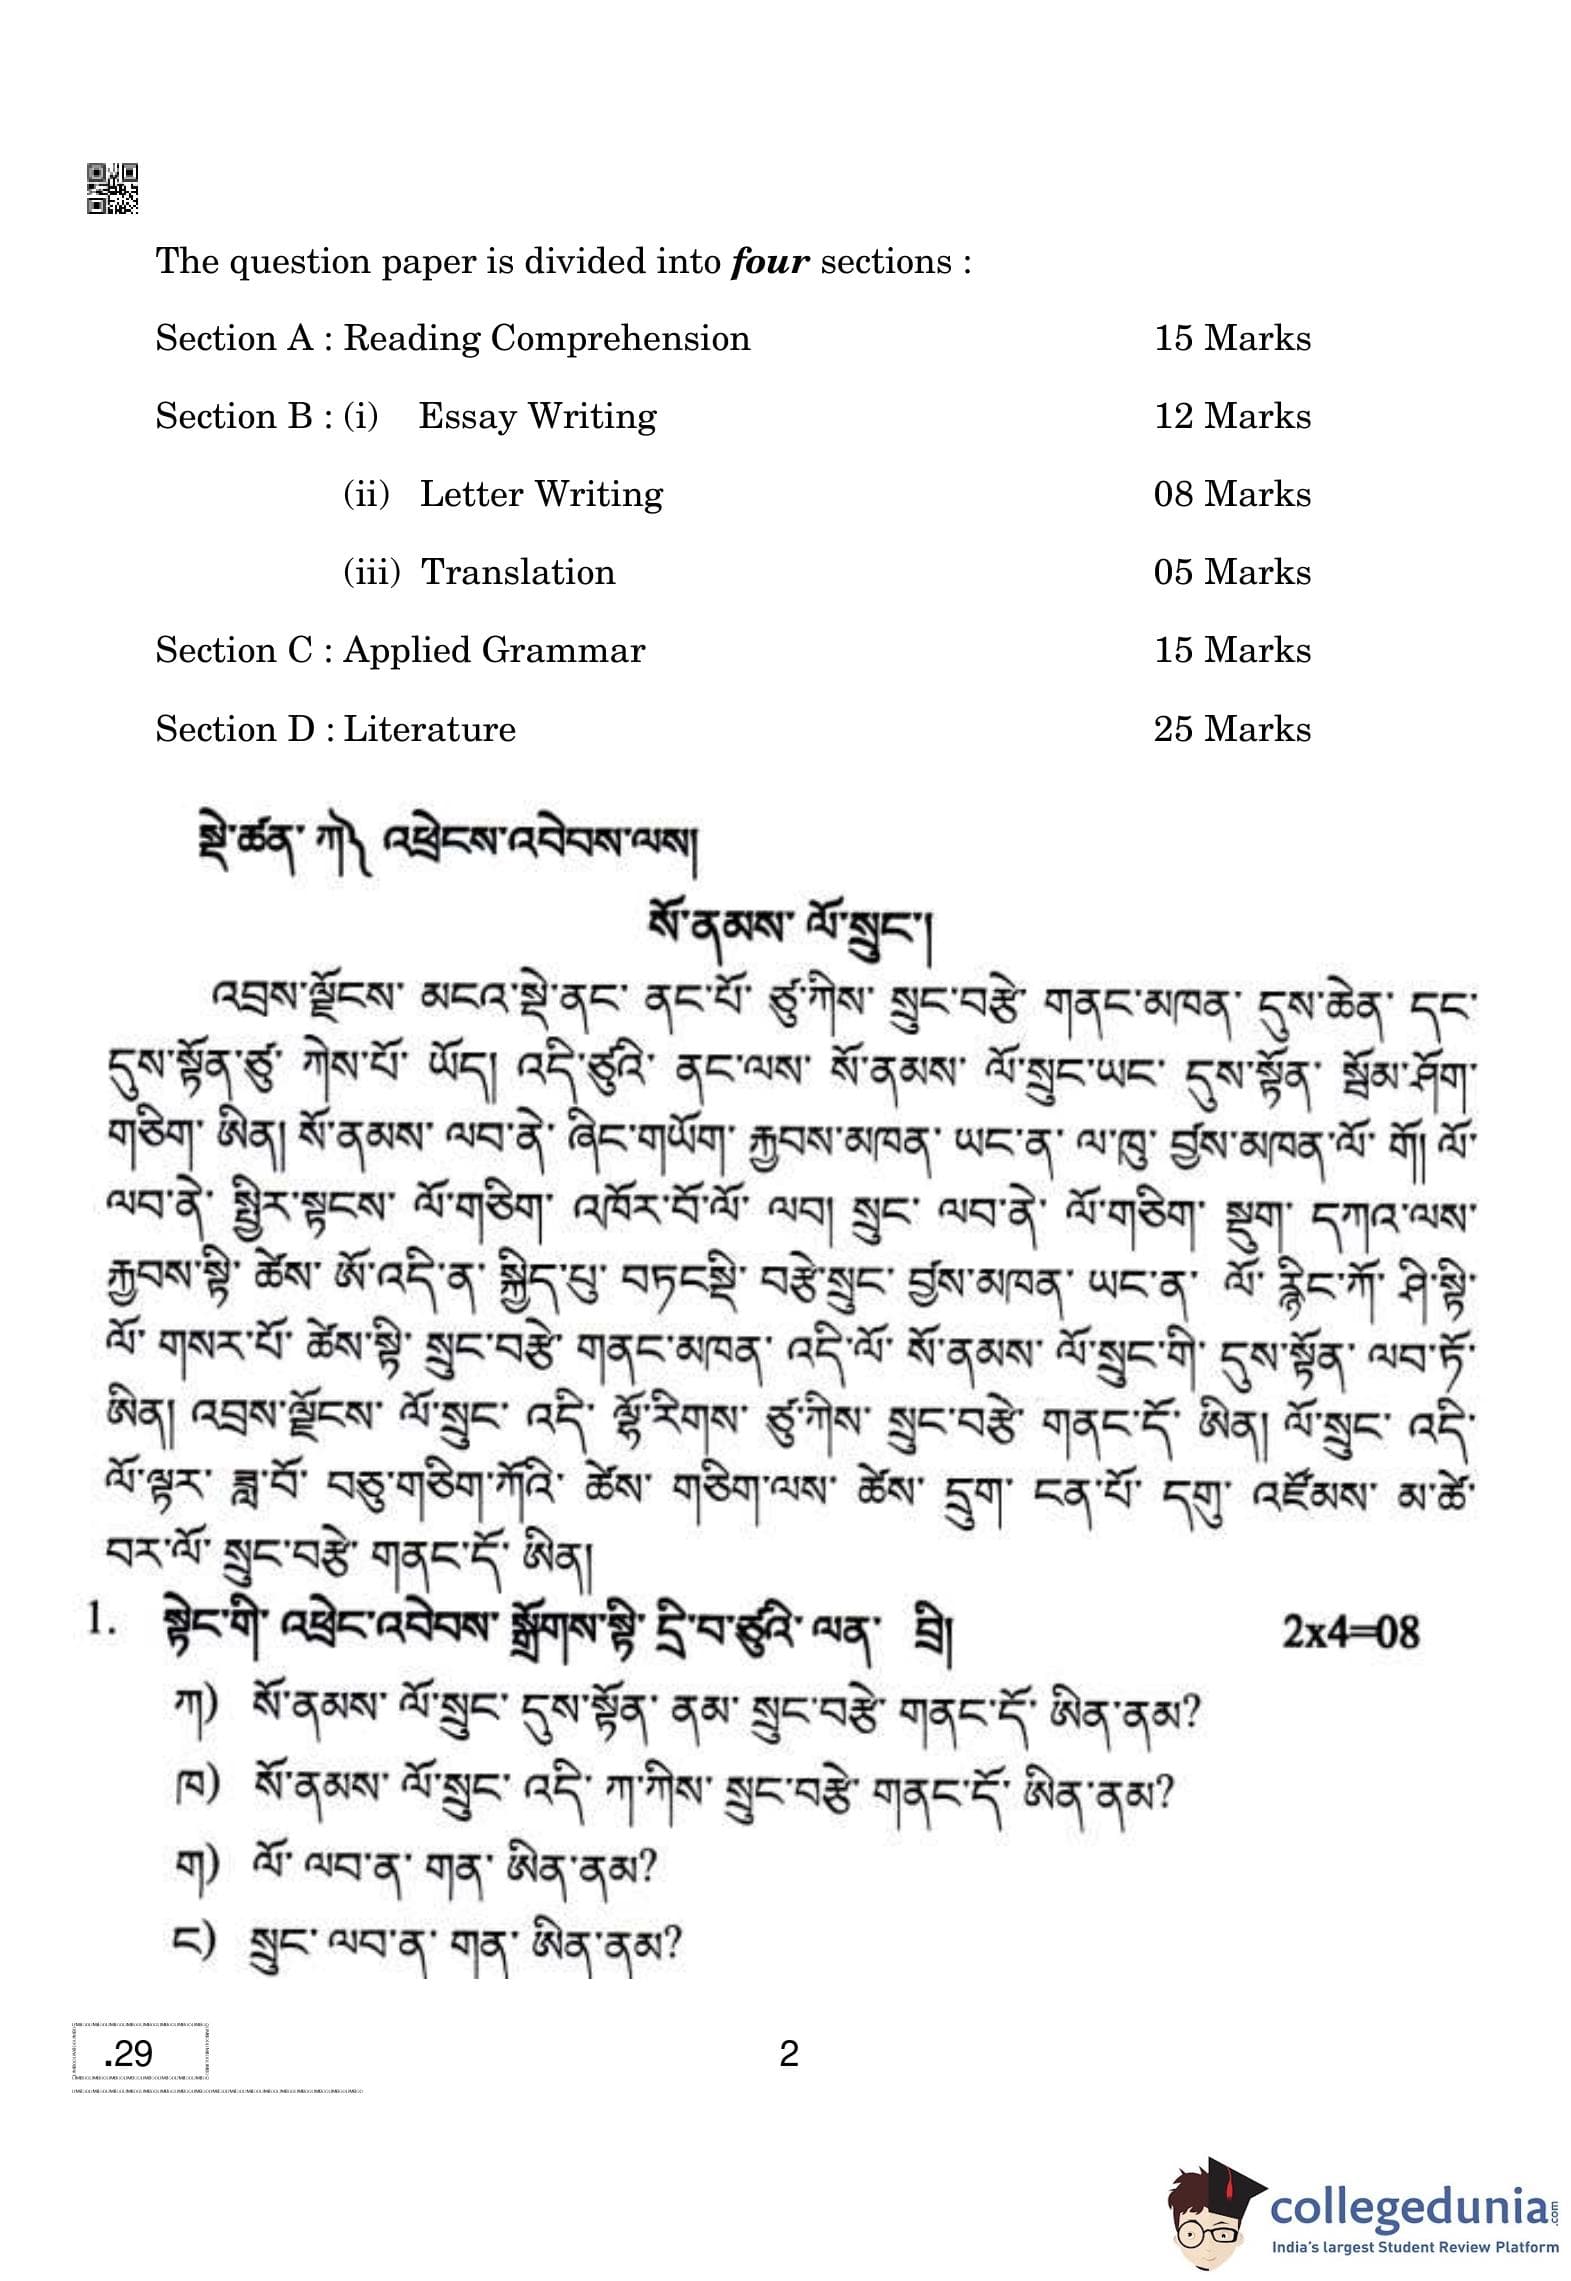 The question paper is divided into four sections :
Section A : Reading Comprehension 15 Marks
Section B : (i) Essay Writing 12 Marks
(ii) Letter Writing 08 Marks
(iii) Translation 05 Marks
Section C : Applied Grammar 15 Marks
Section D : Literature 25 Marks
སྡེ་ཚན་ ཀ༽ འཕྲེངས་འབེབས་ལས།
སོ་ནམས་ ལོ་སྲུང་།
འབྲས་ལྗོངས་ མངའ་སྡེ་ནང་ ནང་པོ་ ཙུ་ཀིས་ སྲུང་བརྩེ་ གནང་མཁན་ དུས་ཆེན་ དང་
དུས་སྟོན་ཙུ་ ཀེས་པོ་ ཡོད། འདི་ཙུའི་ ནང་ལས་ སོ་ནམས་ ལོ་སྲུང་ཡང་ དུས་སྟོན་ སྦོམ་ཤོག་
གཅིག་ ཨིན། སོ་ནམས་ ལབ་ནེ་ ཞིང་གཡོག་ རྐྱབས་མཁན་ ཡང་ན་ ལ་ཁུ་ བྱས་མཁན་ལོ་ གོ། ལོ་
ལབ་ནེ་ སྤྱིར་སྟངས་ ལོ་གཅིག་ འཁོར་བོ་ལོ་ ལབ། སྲུང་ ལབ་ནེ་ ལོ་གཅིག་ སྡུག་ དཀའ་ལས་
རྐྱབས་སྟི་ ཚེས་ ཨོ་འདི་ན་ སྐྱིད་ཕུ་ བཏངསྡི་ བརྩེ་སྲུང་ བྱས་མཁན་ ཡང་ན་ ལོ་ རྙིང་ཀོ་ ཤི་སྟི་
ལོ་ གསར་པོ་ ཚེས་སྟི་ སྲུང་བརྩེ་ གནང་མཁན་ འདི་ལོ་ སོ་ནམས་ ལོ་སྲུང་གི་ དུས་སྟོན་ ལབ་ཏོ་
ཨིན། འབྲས་ལྗོངས་ ལོ་སྲུང་ འདི་ ལྷོ་རིགས་ ཙུ་ཀིས་ སྲུང་བརྩེ་ གནང་དོ་ ཨིན། ལོ་སྲུང་ འདི་
ལོ་ལྟར་ ཟླ་བོ་ བཅུ་གཅིག་ཀོའི་ ཚེས་ གཅིག་ལས་ ཚེས་ དྲུག་ ངན་པོ་ དགུ་ འཛོམས་ མ་ཚེ་
བར་ལོ་ སྲུང་བརྩེ་ གནང་དོ་ ཨིན།
1. སྟེང་གི་ འཕྲེང་འབེབས་ སྒྲོགས་སྟི་ དྲི་བ་ཙུའི་ ལན་ བྲི། 2x4=08
ཀ) སོ་ནམས་ ལོ་སྲུང་ དུས་སྟོན་ ནམ་ སྲུང་བརྩེ་ གནང་དོ་ ཨིན་ནམ?
ཁ) སོ་ནམས་ ལོ་སྲུང་ འདི་ ཀ་ཀིས་ སྲུང་བརྩེ་ གནང་དོ་ ཨིན་ནམ?
ག) ལོ་ ལབ་ན་ གན་ ཨིན་ནམ?
ང) སྲུང་ ལབ་ན་ གན་ ཨིན་ནམ?
.29 2
collegedunia.com
India's largest Student Review Platform